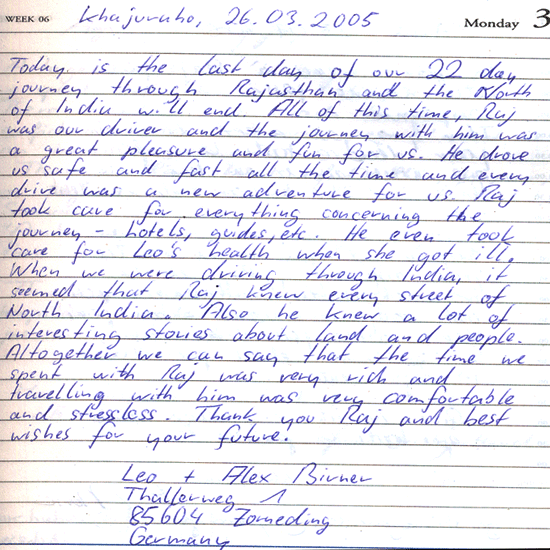 WEEK 06 Khajuraho, 26.03.2005 Monday 3
Today is the last day of our 22 day
journey through Rajasthan and the North
of India will end. All of this time, Raj
was our driver and the journey with him was
a great pleasure and fun for us. He drove
us safe and fast all the time and every
drive was a new adventure for us. Raj
took care for everything concerning the
journey - hotels, guides, etc. He even took
care for Leo's health when she got ill.
When we were driving through India, it
seemed that Raj knew every street of
North India. Also he knew a lot of
interesting stories about land and people.
Altogether we can say that the time we
spent with Raj was very rich and
travelling with him was very comfortable
and stressless. Thank you Raj and best
wishes for your future.
Leo + Alex Birner
Thallerweg 1
85604 Zorneding
Germany